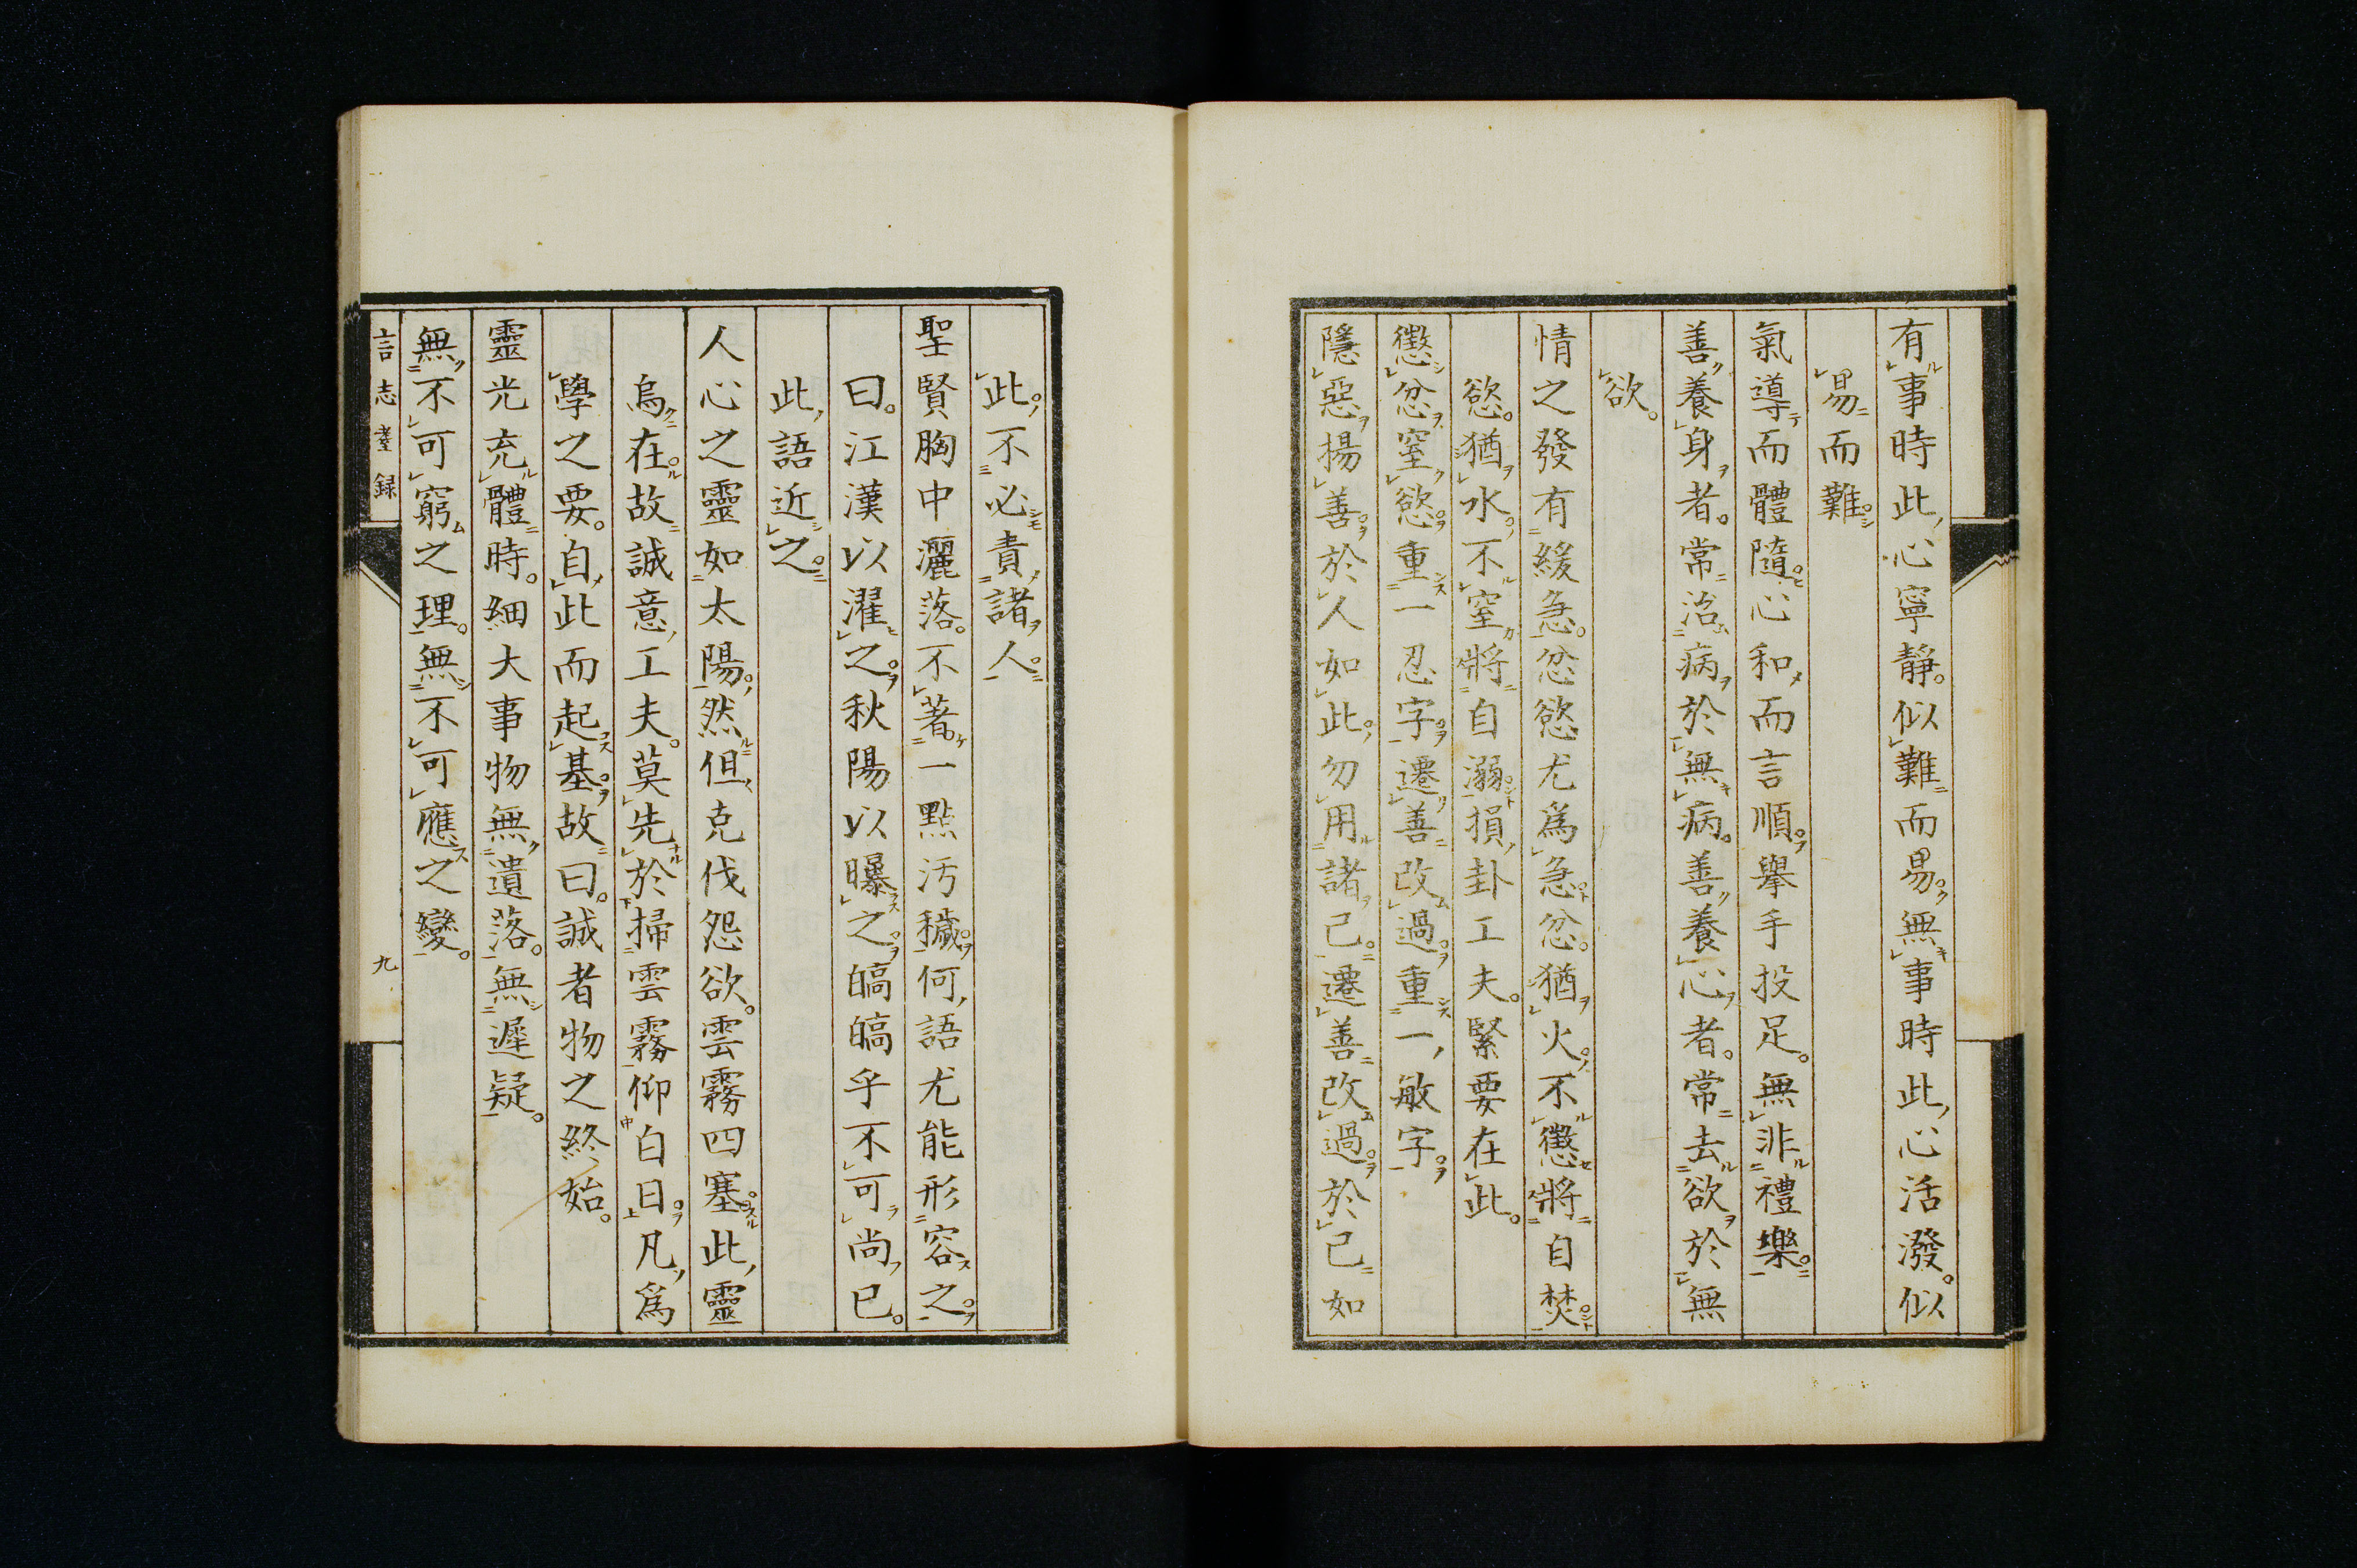 有事時此心寧靜。似難而易。無事時此心活潑。似
易而難。
氣導而體隨。心和而言順。擧手投足。無非禮樂。
善養身者。常治病於無病。善養心者。常去欲於無
欲。
情之發有緩急。忿慾尤爲急。忿。猶火。不懲將自焚。
慾。猶水。不窒將自溺。損卦工夫。緊要在此。
懲忿窒慾。重一忍字。遷善改過。重一敏字。
隱惡揚善。於人如此。勿用諸己。遷善改過。於己如
此。不必責諸人。
聖賢胸中灑落。不著一點汚穢。何語尤能形容之。
曰。江漢以濯之。秋陽以曝之。皜皜乎不可尚已。
此語近之。
人心之靈如太陽。然但克伐怨欲。雲霧四塞。此靈
烏在。故誠意工夫。莫先於掃雲霧仰白日。凡爲
學之要。自此而起基。故曰。誠者物之終始。
靈光充體時。細大事物無遺落。無遲疑。
無不可窮之理。無不可應之變。
言志耋録
九